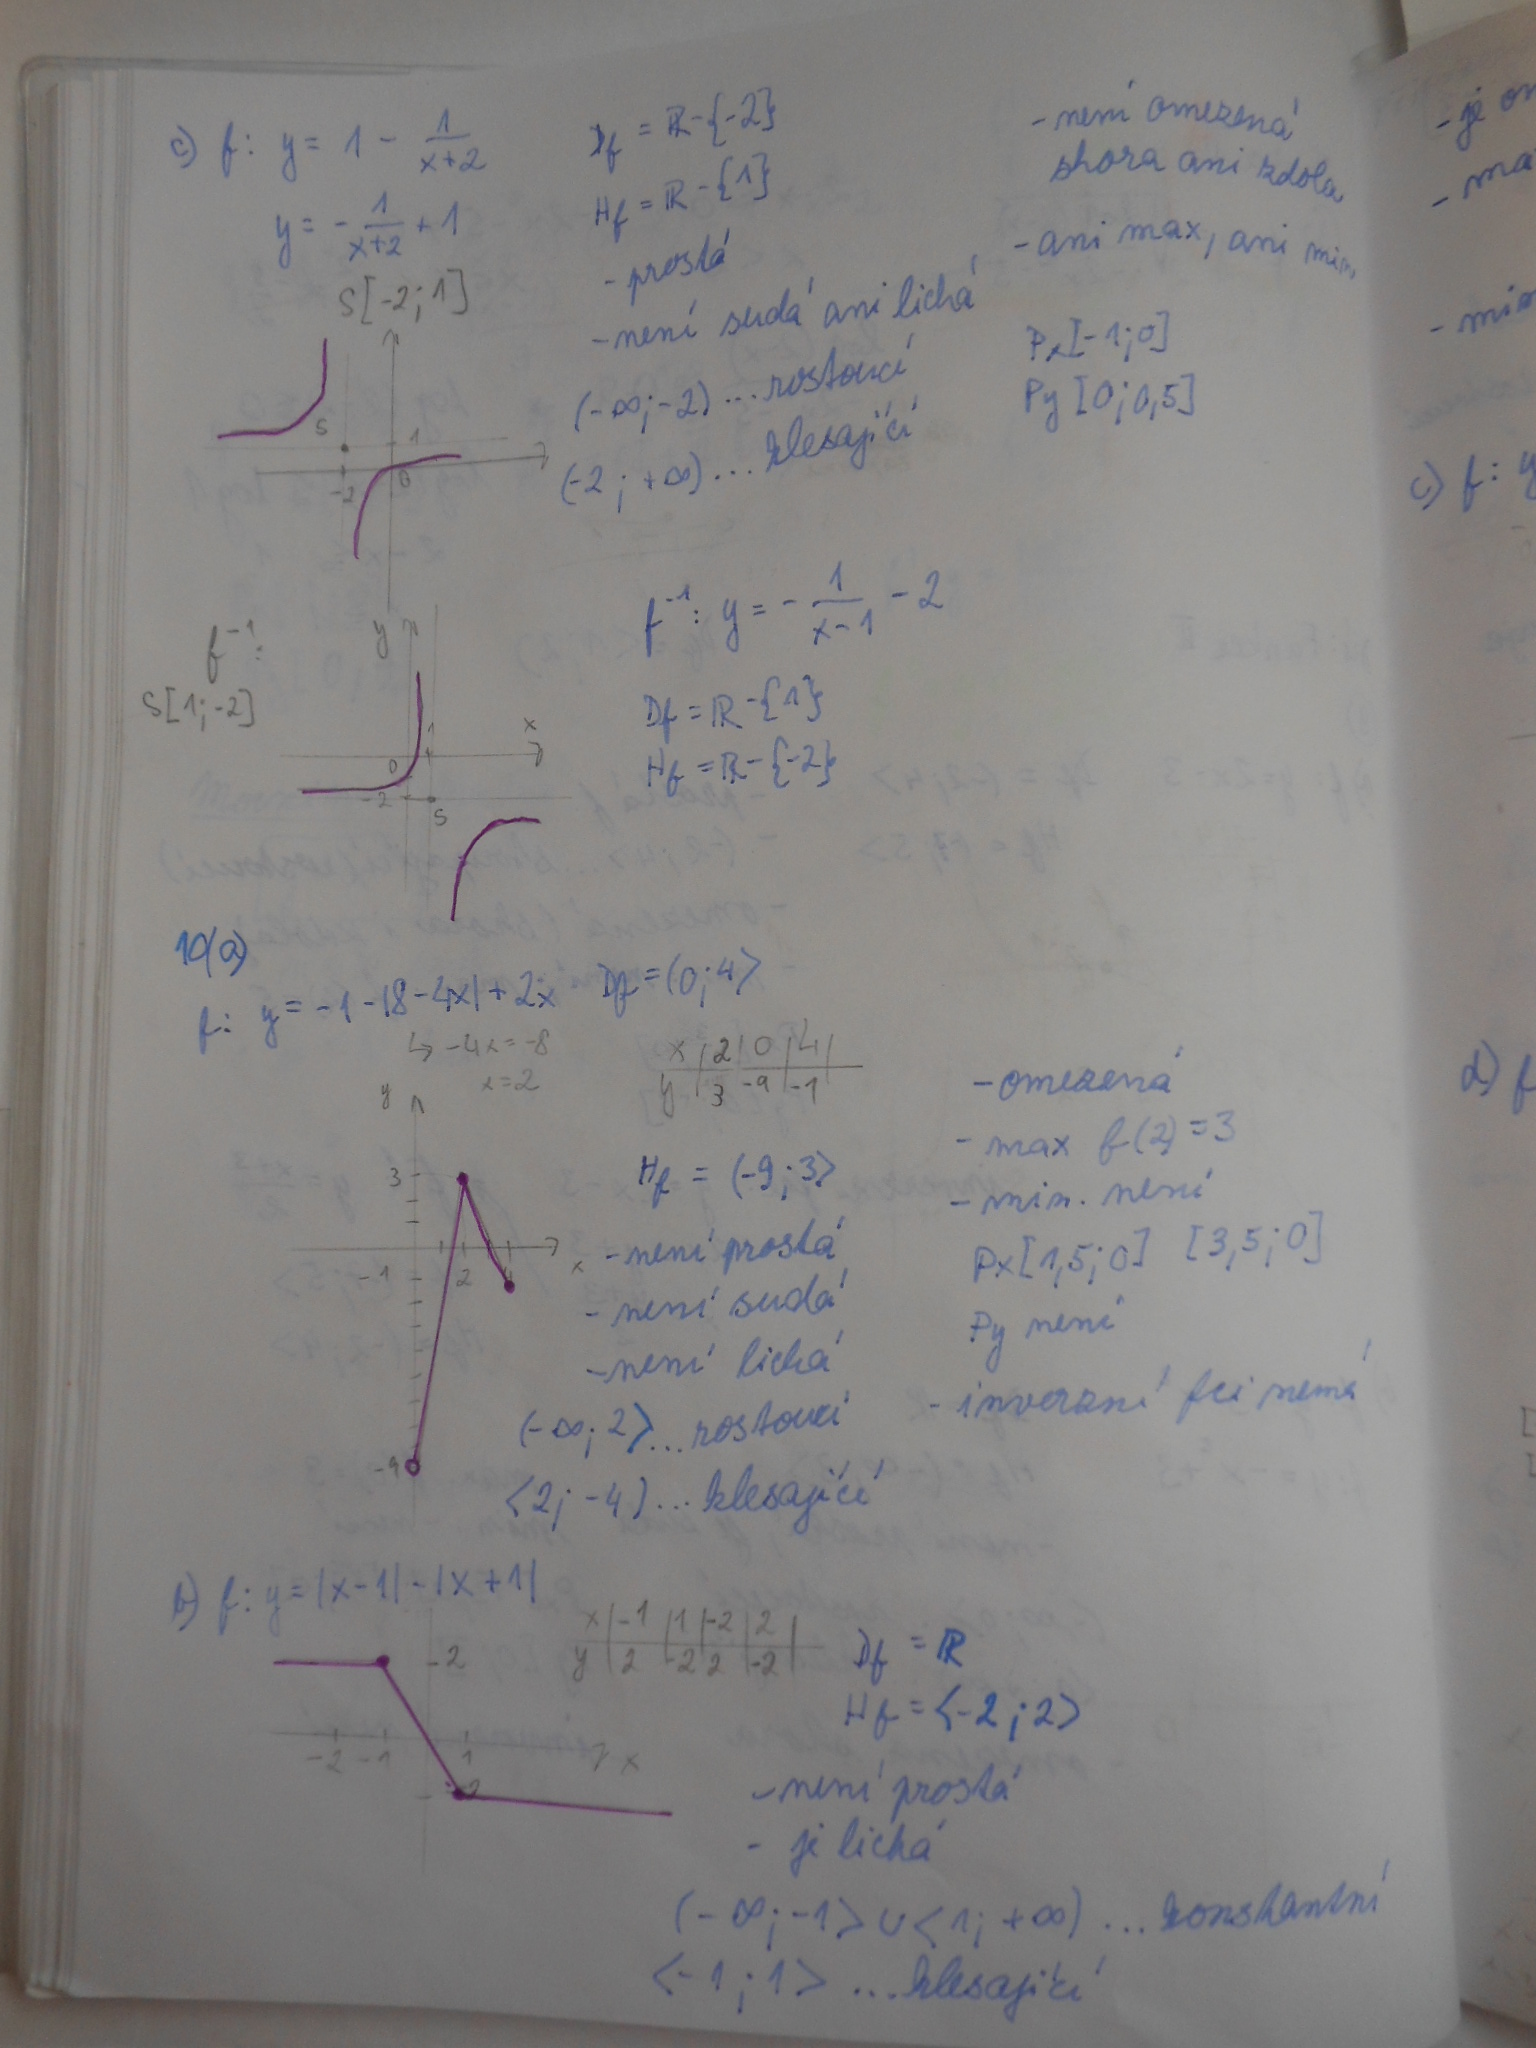 c) f: y = 1 - 1/(x+2)
y = - 1/(x+2) + 1
S[-2; 1]
S
1
-2
0
Df = R - {-2}
Hf = R - {1}
- prostá
- není sudá ani lichá
(-∞; -2) ... rostoucí
(-2; +∞) ... klesající
- není omezená
shora ani zdola
- ani max, ani min.
Px[-1; 0]
Py[0; 0,5]
f⁻¹:
S[1; -2]
y
x
1
0
-2
S
f⁻¹: y = - 1/(x-1) - 2
Df = R - {1}
Hf = R - {-2}
10(a)
f: y = -1 - |8 - 4x| + 2x Df = (0; 4>
↳ -4x = -8
x = 2
x | 2 | 0 | 4 |
y | 3 | -9 | -1 |
y
3
-1
2
4
x
-9
Hf = (-9; 3>
- není prostá
- není sudá
- není lichá
(-∞; 2> ... rostoucí
<2; -4) ... klesající
- omezená
- max f(2) = 3
- min. není
Px[1,5; 0] [3,5; 0]
Py není
- inverzní fci nemá
b) f: y = |x-1| - |x+1|
x | -1 | 1 | -2 | 2 |
y | 2 | -2 | 2 | -2 |
2
-2 -1 1 x
-2
Df = R
Hf = <-2; 2>
- není prostá
- je lichá
(-∞; -1> ∪ <1; +∞) ... konstantní
<-1; 1> ... klesající
- je
c) f: y
d) f